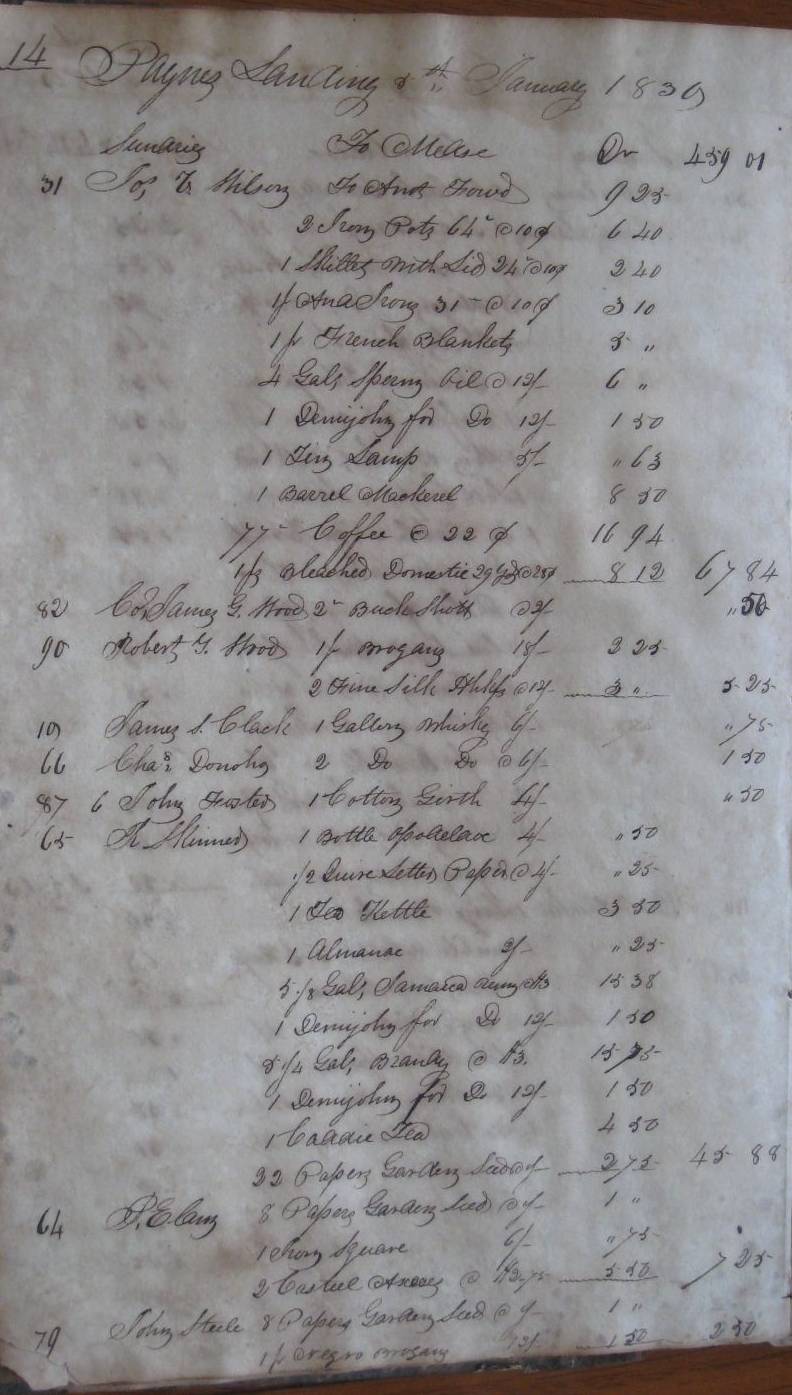 14 Paynes Landing 5th January 1839
Sundries To Mdse Dr 459 01
31 Jos T. Wilson To Amt Forwd 9 25
2 Iron Pots 64" @ 10¢ 6 40
1 Skillet with Lid 24" @ 10¢ 2 40
1 pr And Irons 31" @ 10¢ 3 10
1 pr French Blankets 5 "
4 Gals Sperm Oil @ 12/- 6 "
1 Demijohn for Do 12/- 1 50
1 Tin Lamp 5/- " 63
1 Barrel Mackerel 8 50
77" Coffee @ 22¢ 16 94
1 ps Bleached Domestic 29 Yds @ 28¢ 8 12 67 84
82 Col James G. Wood 2" Buck Shott @ 2/- " 50
90 Robert G. Wood 1 pr Brogans 18/- 2 25
2 Fine Silk Hhkfs @ 12/- 3 " 5 25
10 James S. Clack 1 Gallon Whisky 6/- " 75
66 Chas Donoho 2 Do Do @ 6/- 1 50
87 6 John Foster 1 Cotton Girth 4/- " 50
65 Skinner 1 Bottle Opodeldoc 4/- " 50
1/2 Quire Letter Paper @ 4/- " 25
1 Tea Kettle 3 50
1 Almanac 2/- " 25
5 1/8 Gals Jamaica Rum @ $3 15 38
1 Demijohn for Do 12/- 1 50
5 1/4 Gals Brandy @ $3. 15 75
1 Demijohn for Do 12/- 1 50
1 Caddie Tea 4 50
22 Papers Garden Seed @ 1/- 2 75 45 88
64 P. E. 8 Papers Garden Seed @ 1/- 1 "
1 Iron Square 6/- " 75
2 Casteel Axes @ $2.75 5 50 7 25
79 John Steele 8 Papers Garden Seed @ 1/- 1 "
1 pr Negro Brogans 12/- 1 50 2 50